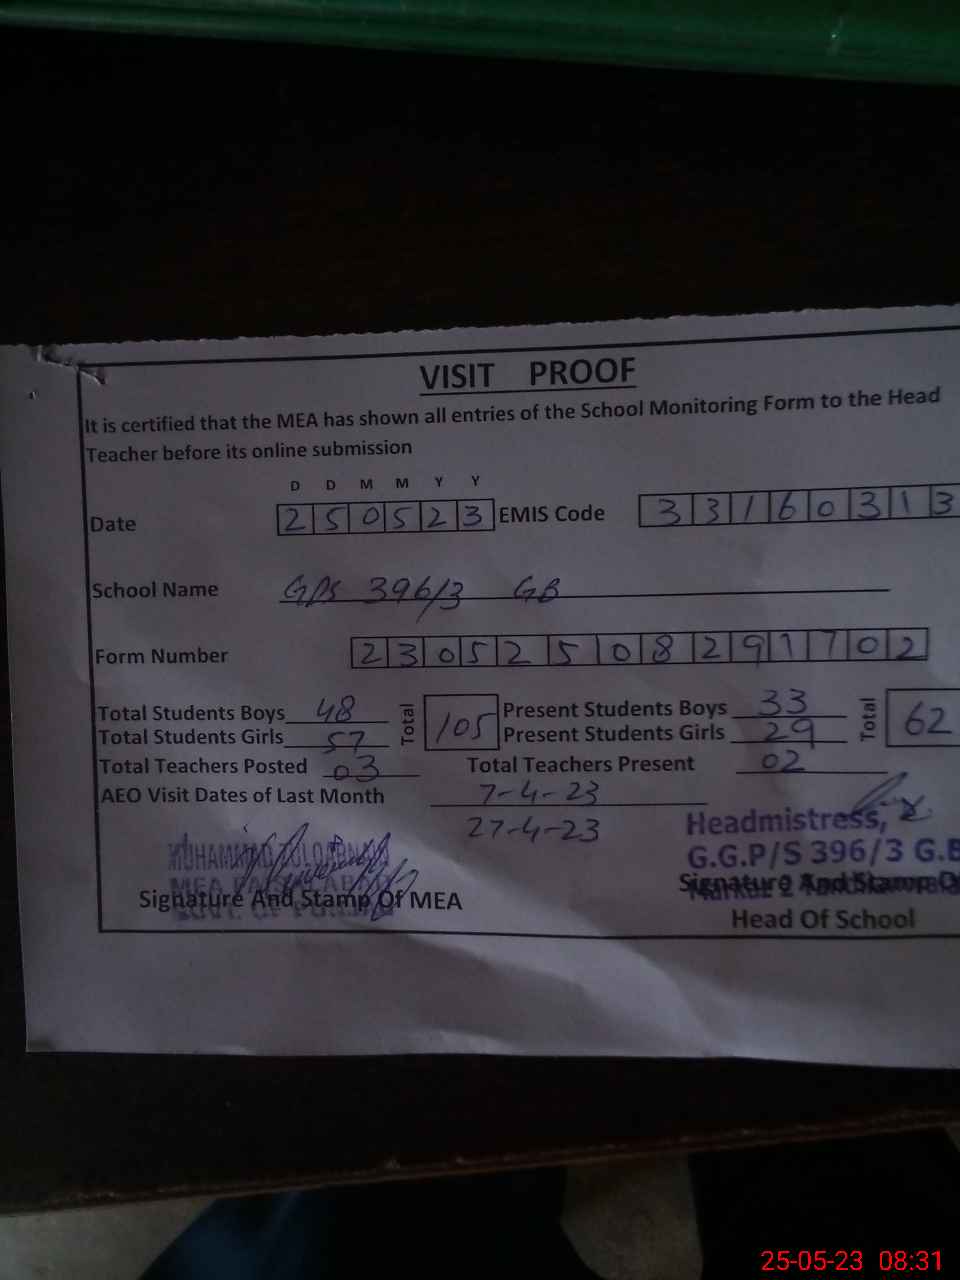 VISIT PROOF
It is certified that the MEA has shown all entries of the School Monitoring Form to the Head
Teacher before its online submission
D D M M Y Y
Date 250523 EMIS Code 33160313
School Name GPS 396/3 GB
Form Number 23052508291702
Total Students Boys 48 Total 105 Present Students Boys 33 Total 62
Total Students Girls 57 Present Students Girls 29
Total Teachers Posted 03 Total Teachers Present 02
AEO Visit Dates of Last Month 7-4-23
27-4-23
Headmistress,
MUHAMMAD G.G.P/S 396/3 G.B
Signature And Stamp Of MEA Signature And Stamp O
Head Of School
25-05-23 08:31